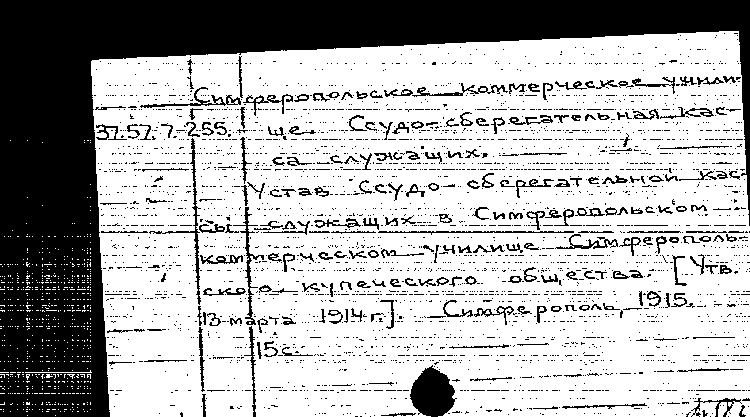 Симферопольское коммерческое учили-
37.57.7.255. ще. Ссудо-сберегательная кас-
са служащих.
Устав Ссудо-сберегательной кас-
сы служащих в Симферопольском
коммерческом училище Симферополь-
ского купеческого общества. [Утв.
13 марта 1914 г.]. Симферополь, 1915.
15 с.